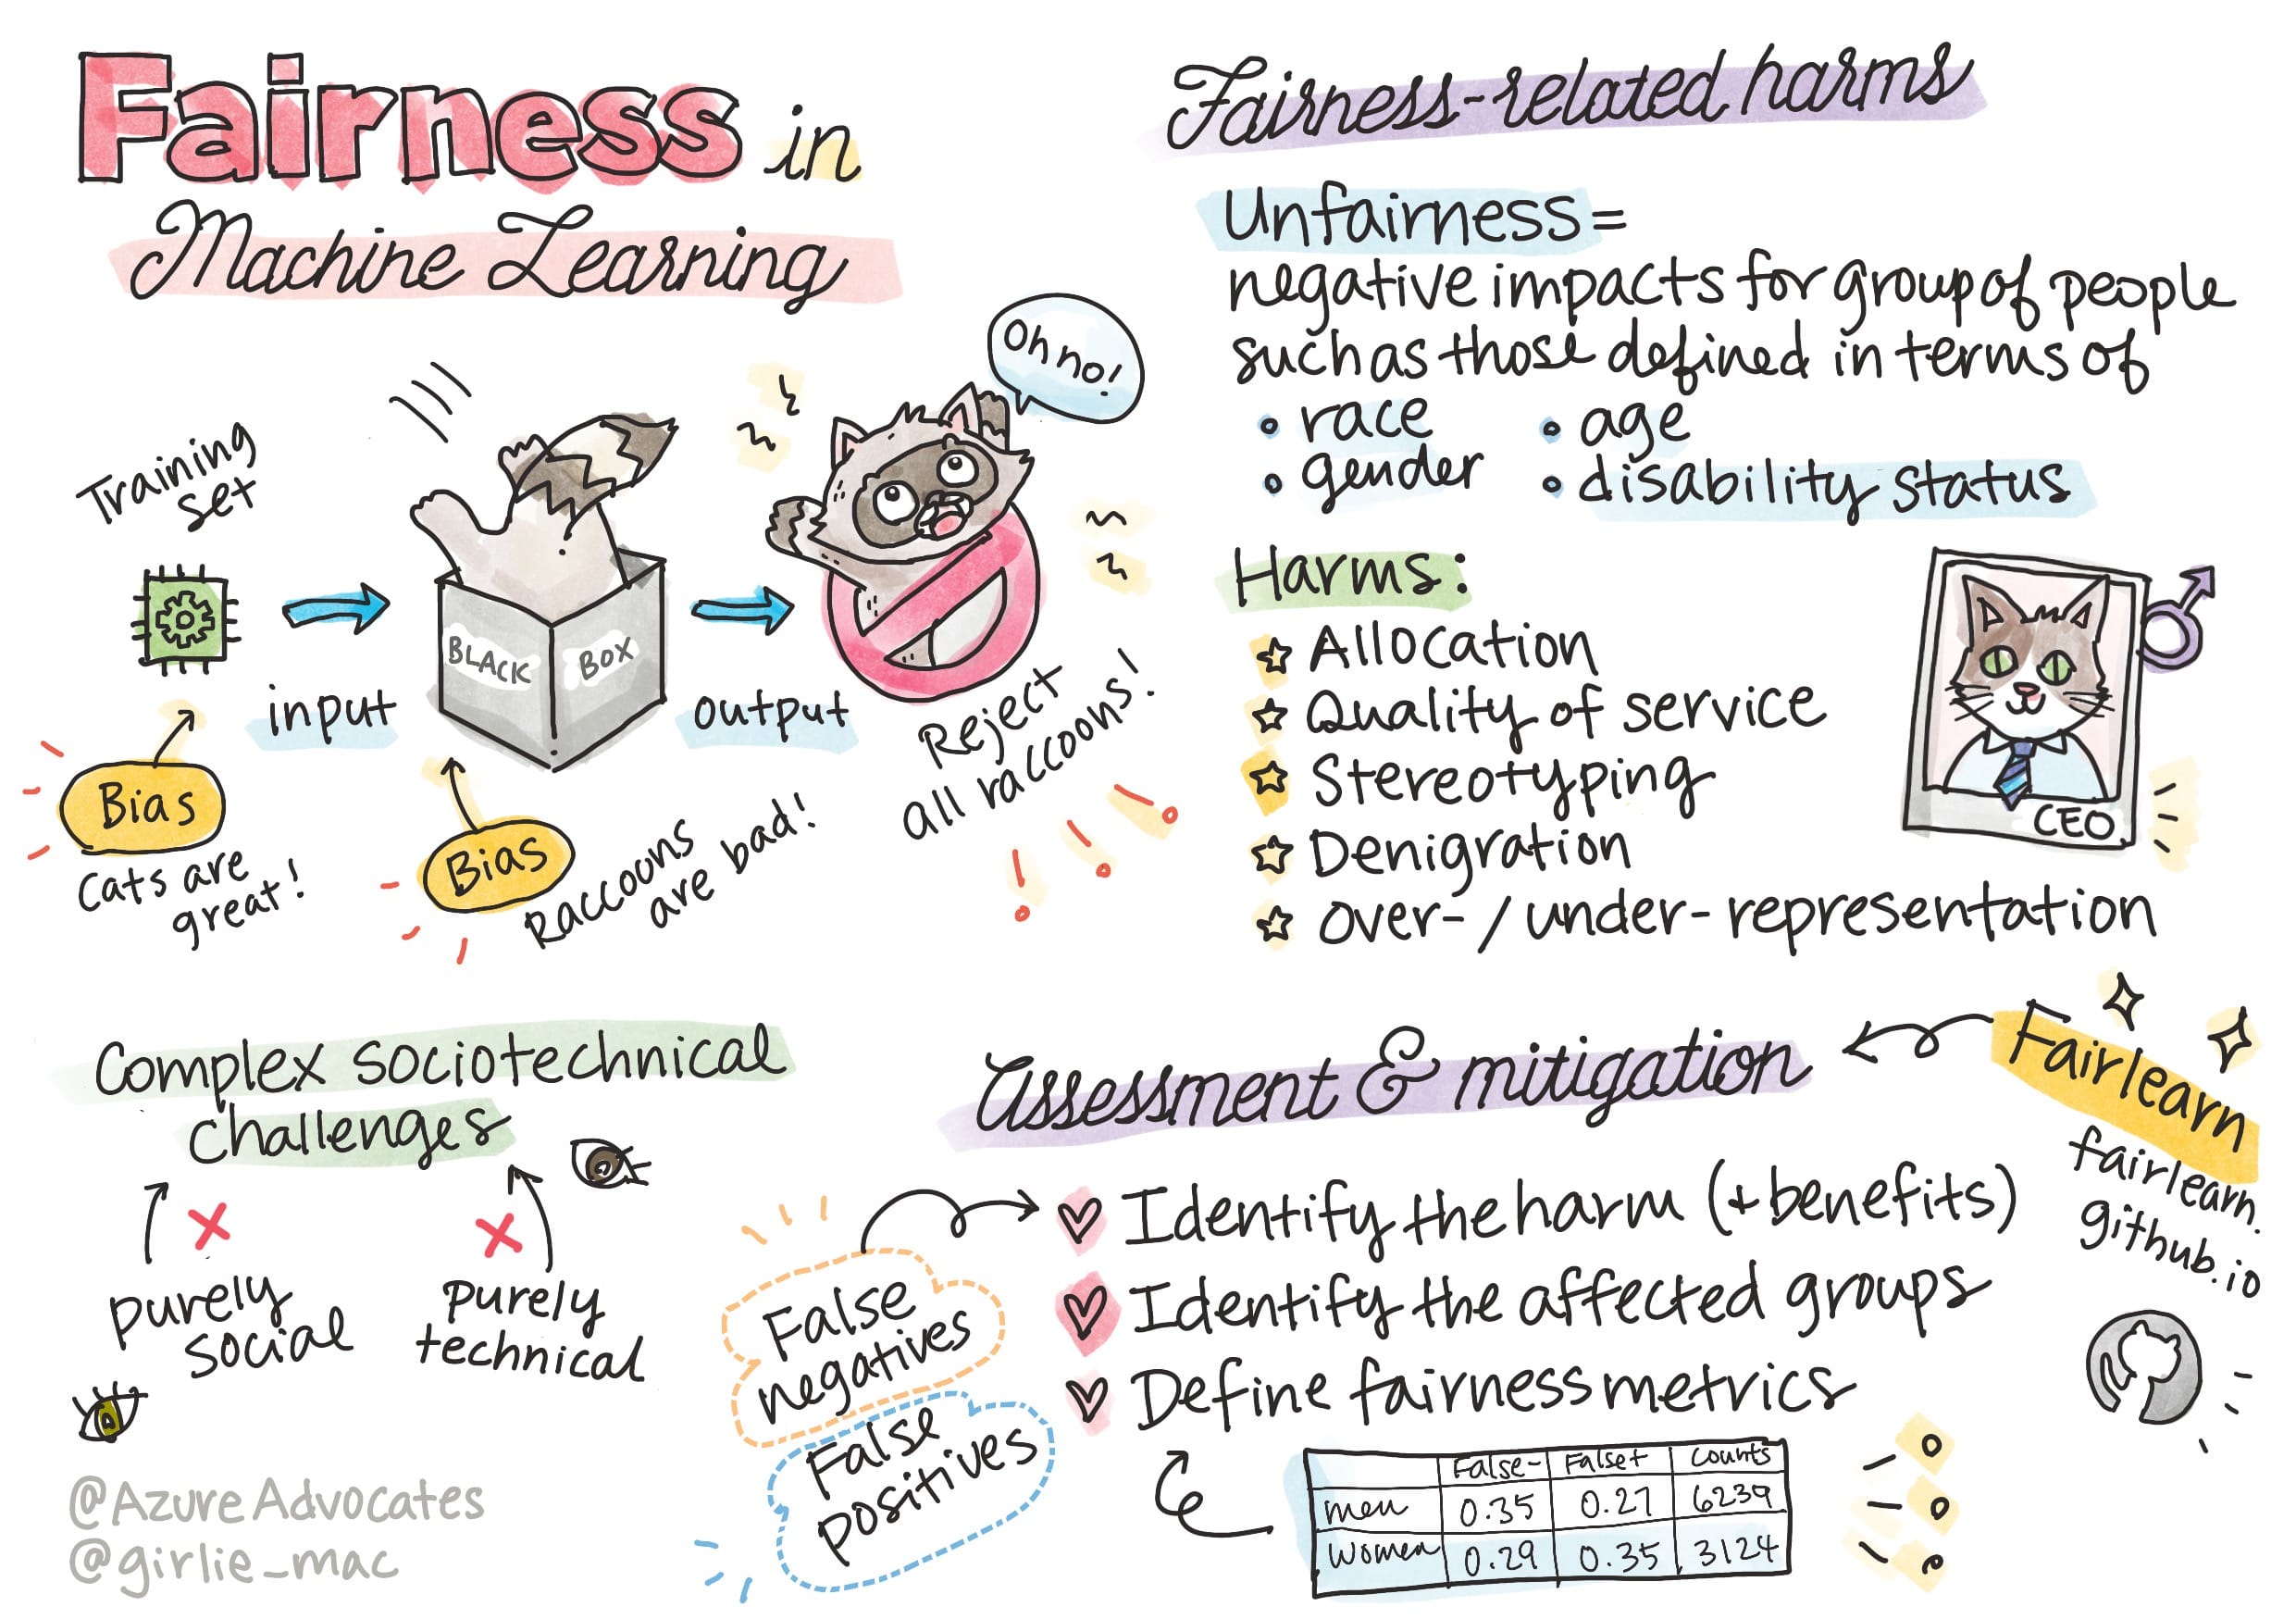 Fairness in
Machine Learning
Training
set
input
BLACK BOX
output
Oh no!
Reject
all raccoons!
Bias
Cats are
great!
Bias
Raccoons
are bad!
Fairness-related harms
Unfairness =
negative impacts for group of people
such as those defined in terms of
• race
• age
• gender
• disability status
Harms:
Allocation
Quality of service
Stereotyping
Denigration
over- / under- representation
CEO
Complex sociotechnical
challenges
purely
social
Purely
technical
@AzureAdvocates
@girlie_mac
Assessment & mitigation
Fairlearn
fairlearn.
github.io
False
negatives
False
positives
Identify the harm (+ benefits)
Identify the affected groups
Define fairness metrics
False- False+ Counts
men 0.35 0.27 6239
Women 0.29 0.35 3124